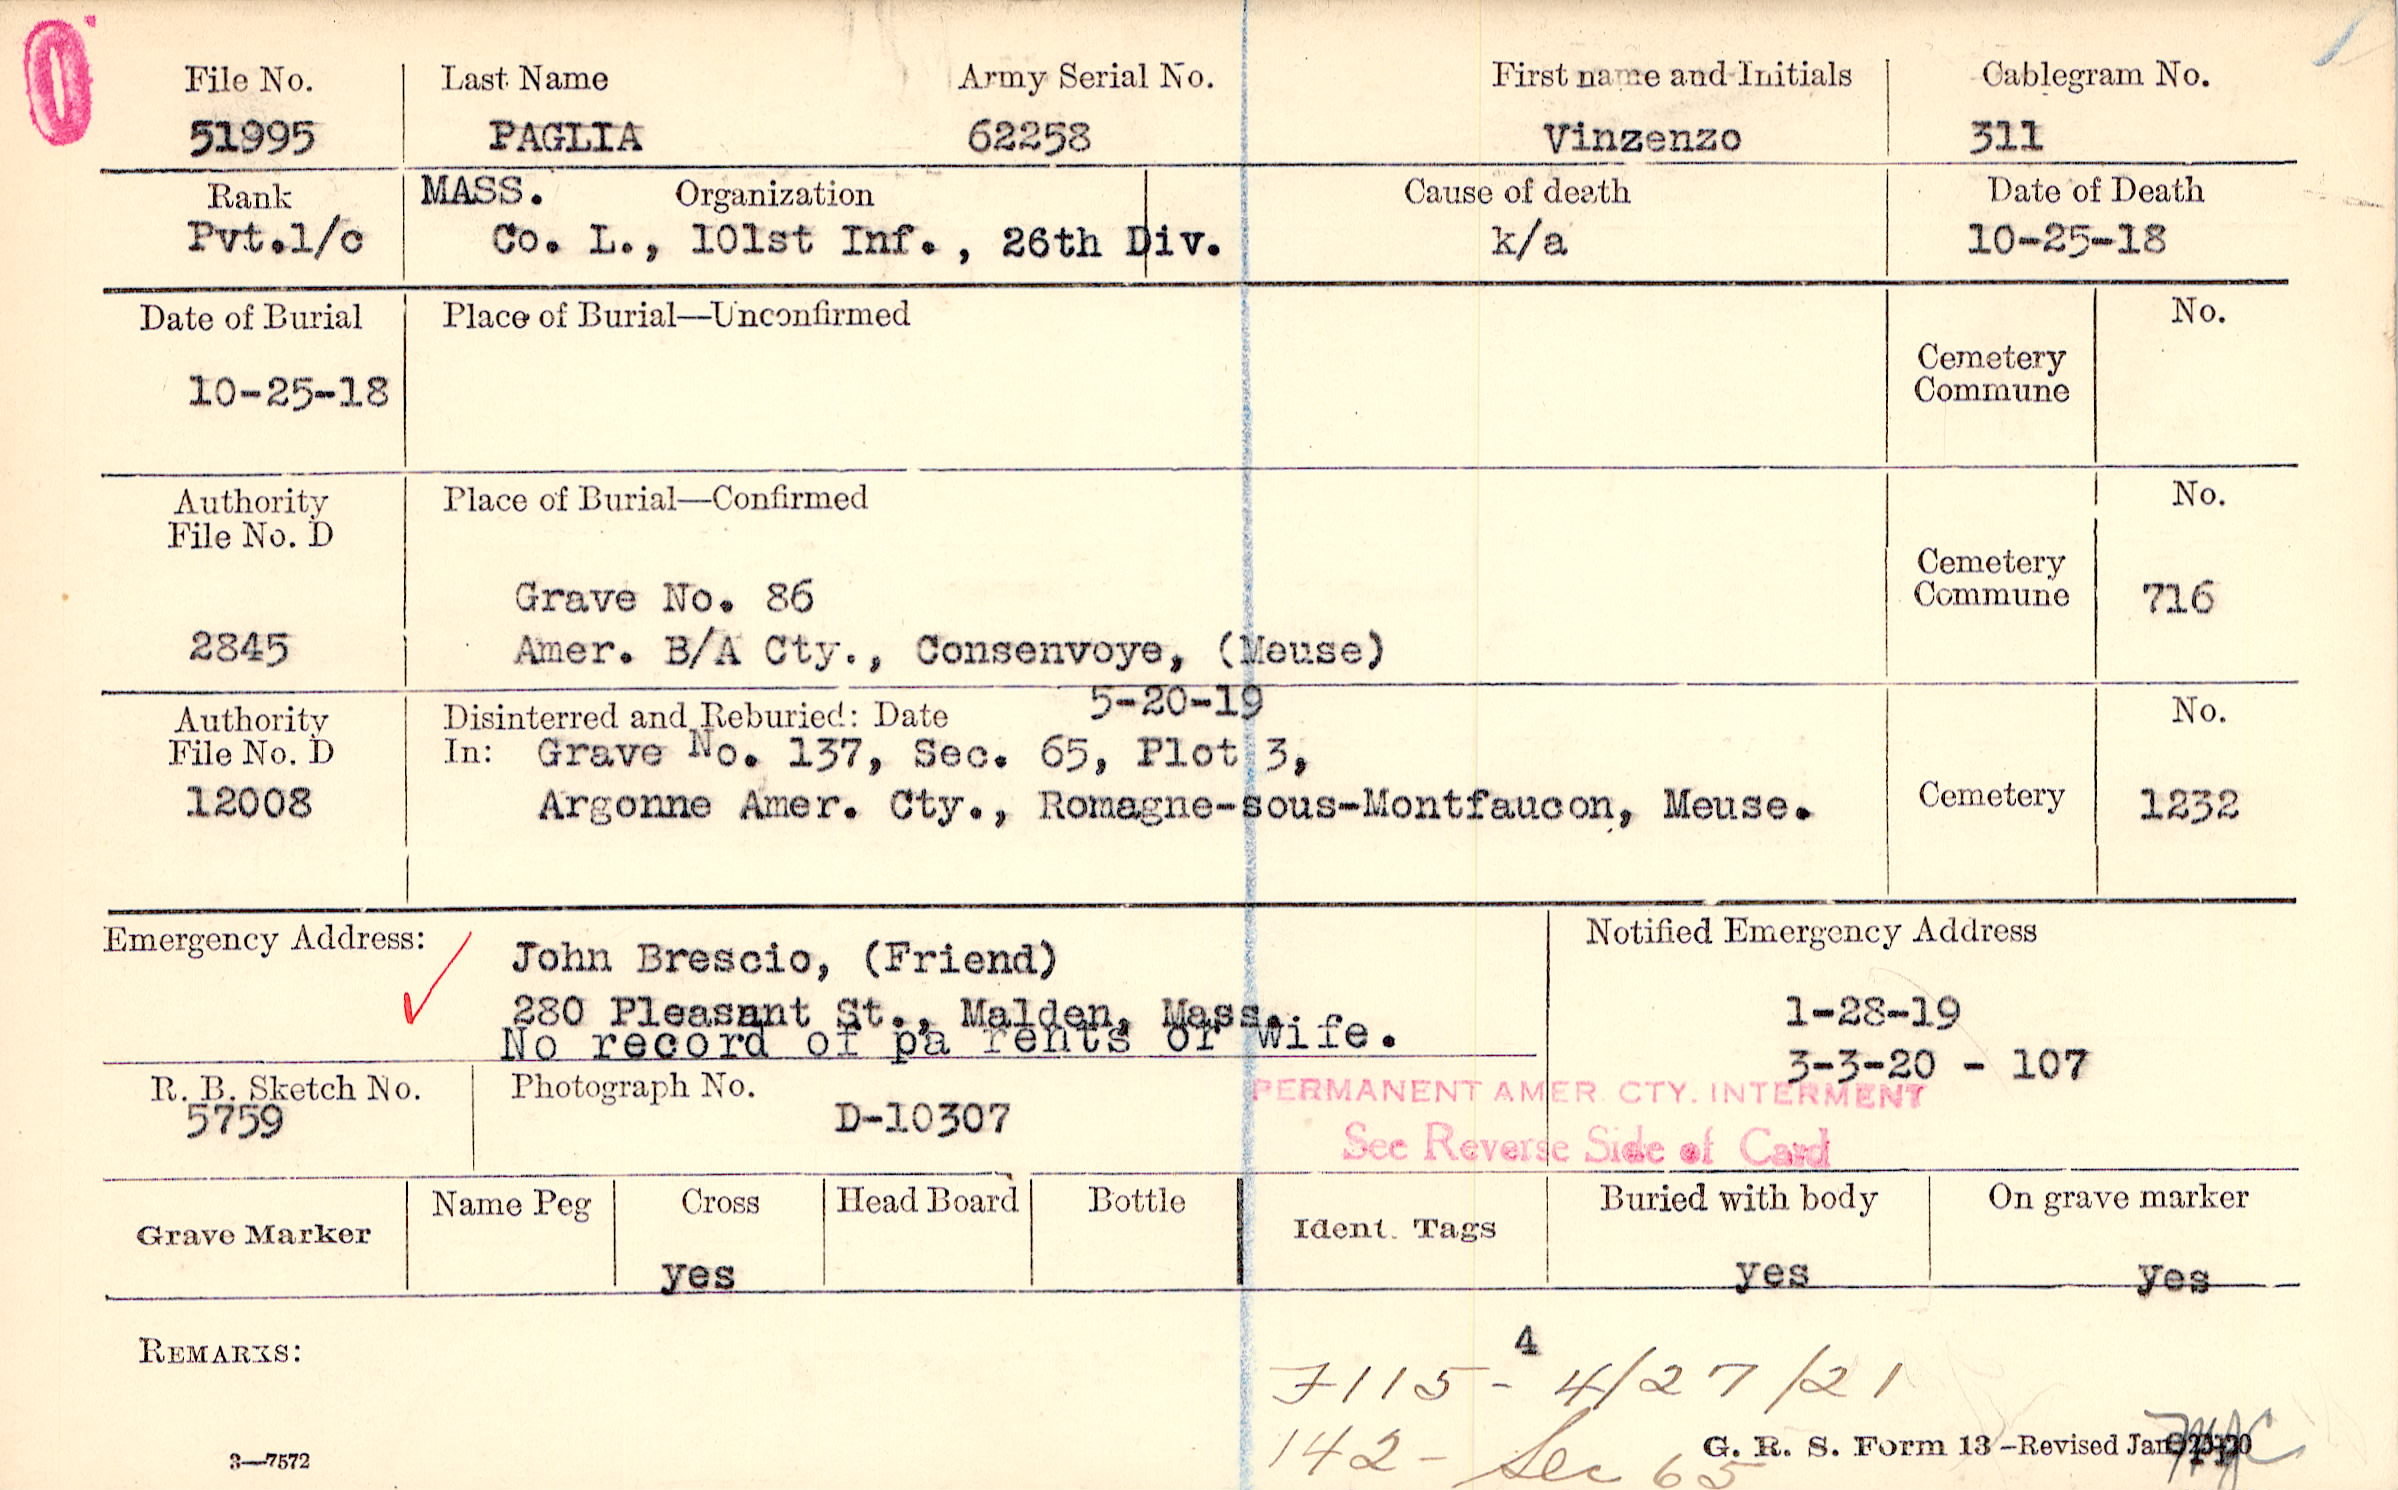 0
File No. Last Name Army Serial No. First name and Initials Cablegram No.
51995 PAGLIA 62258 Vinzenzo 311
Rank MASS. Organization Cause of death Date of Death
Pvt.1/c Co. L., 101st Inf., 26th Div. k/a 10-25-18
Date of Burial Place of Burial—Unconfirmed No.
Cemetery
Commune
10-25-18
Authority Place of Burial—Confirmed No.
File No. D
Cemetery
Grave No. 86 Commune 716
2845 Amer. B/A Cty., Consenvoye, (Meuse)
Authority Disinterred and Reburied: Date 5-20-19 No.
File No. D In: Grave No. 137, Sec. 65, Plot 3,
12008 Argonne Amer. Cty., Romagne-sous-Montfaucon, Meuse. Cemetery 1232
Emergency Address: Notified Emergency Address
John Brescio, (Friend)
280 Pleasant St., Malden, Mass. 1-28-19
No record of pa rents or wife.
3-3-20 - 107
R. B. Sketch No. Photograph No. PERMANENT AMER. CTY. INTERMENT
5759 D-10307 See Reverse Side of Card
Grave Marker Name Peg Cross Head Board Bottle Ident. Tags Buried with body On grave marker
yes yes yes
REMARKS:
4
7115 - 4/27/21
142 - Sec 65
3—7572 G. R. S. Form 13—Revised Jan